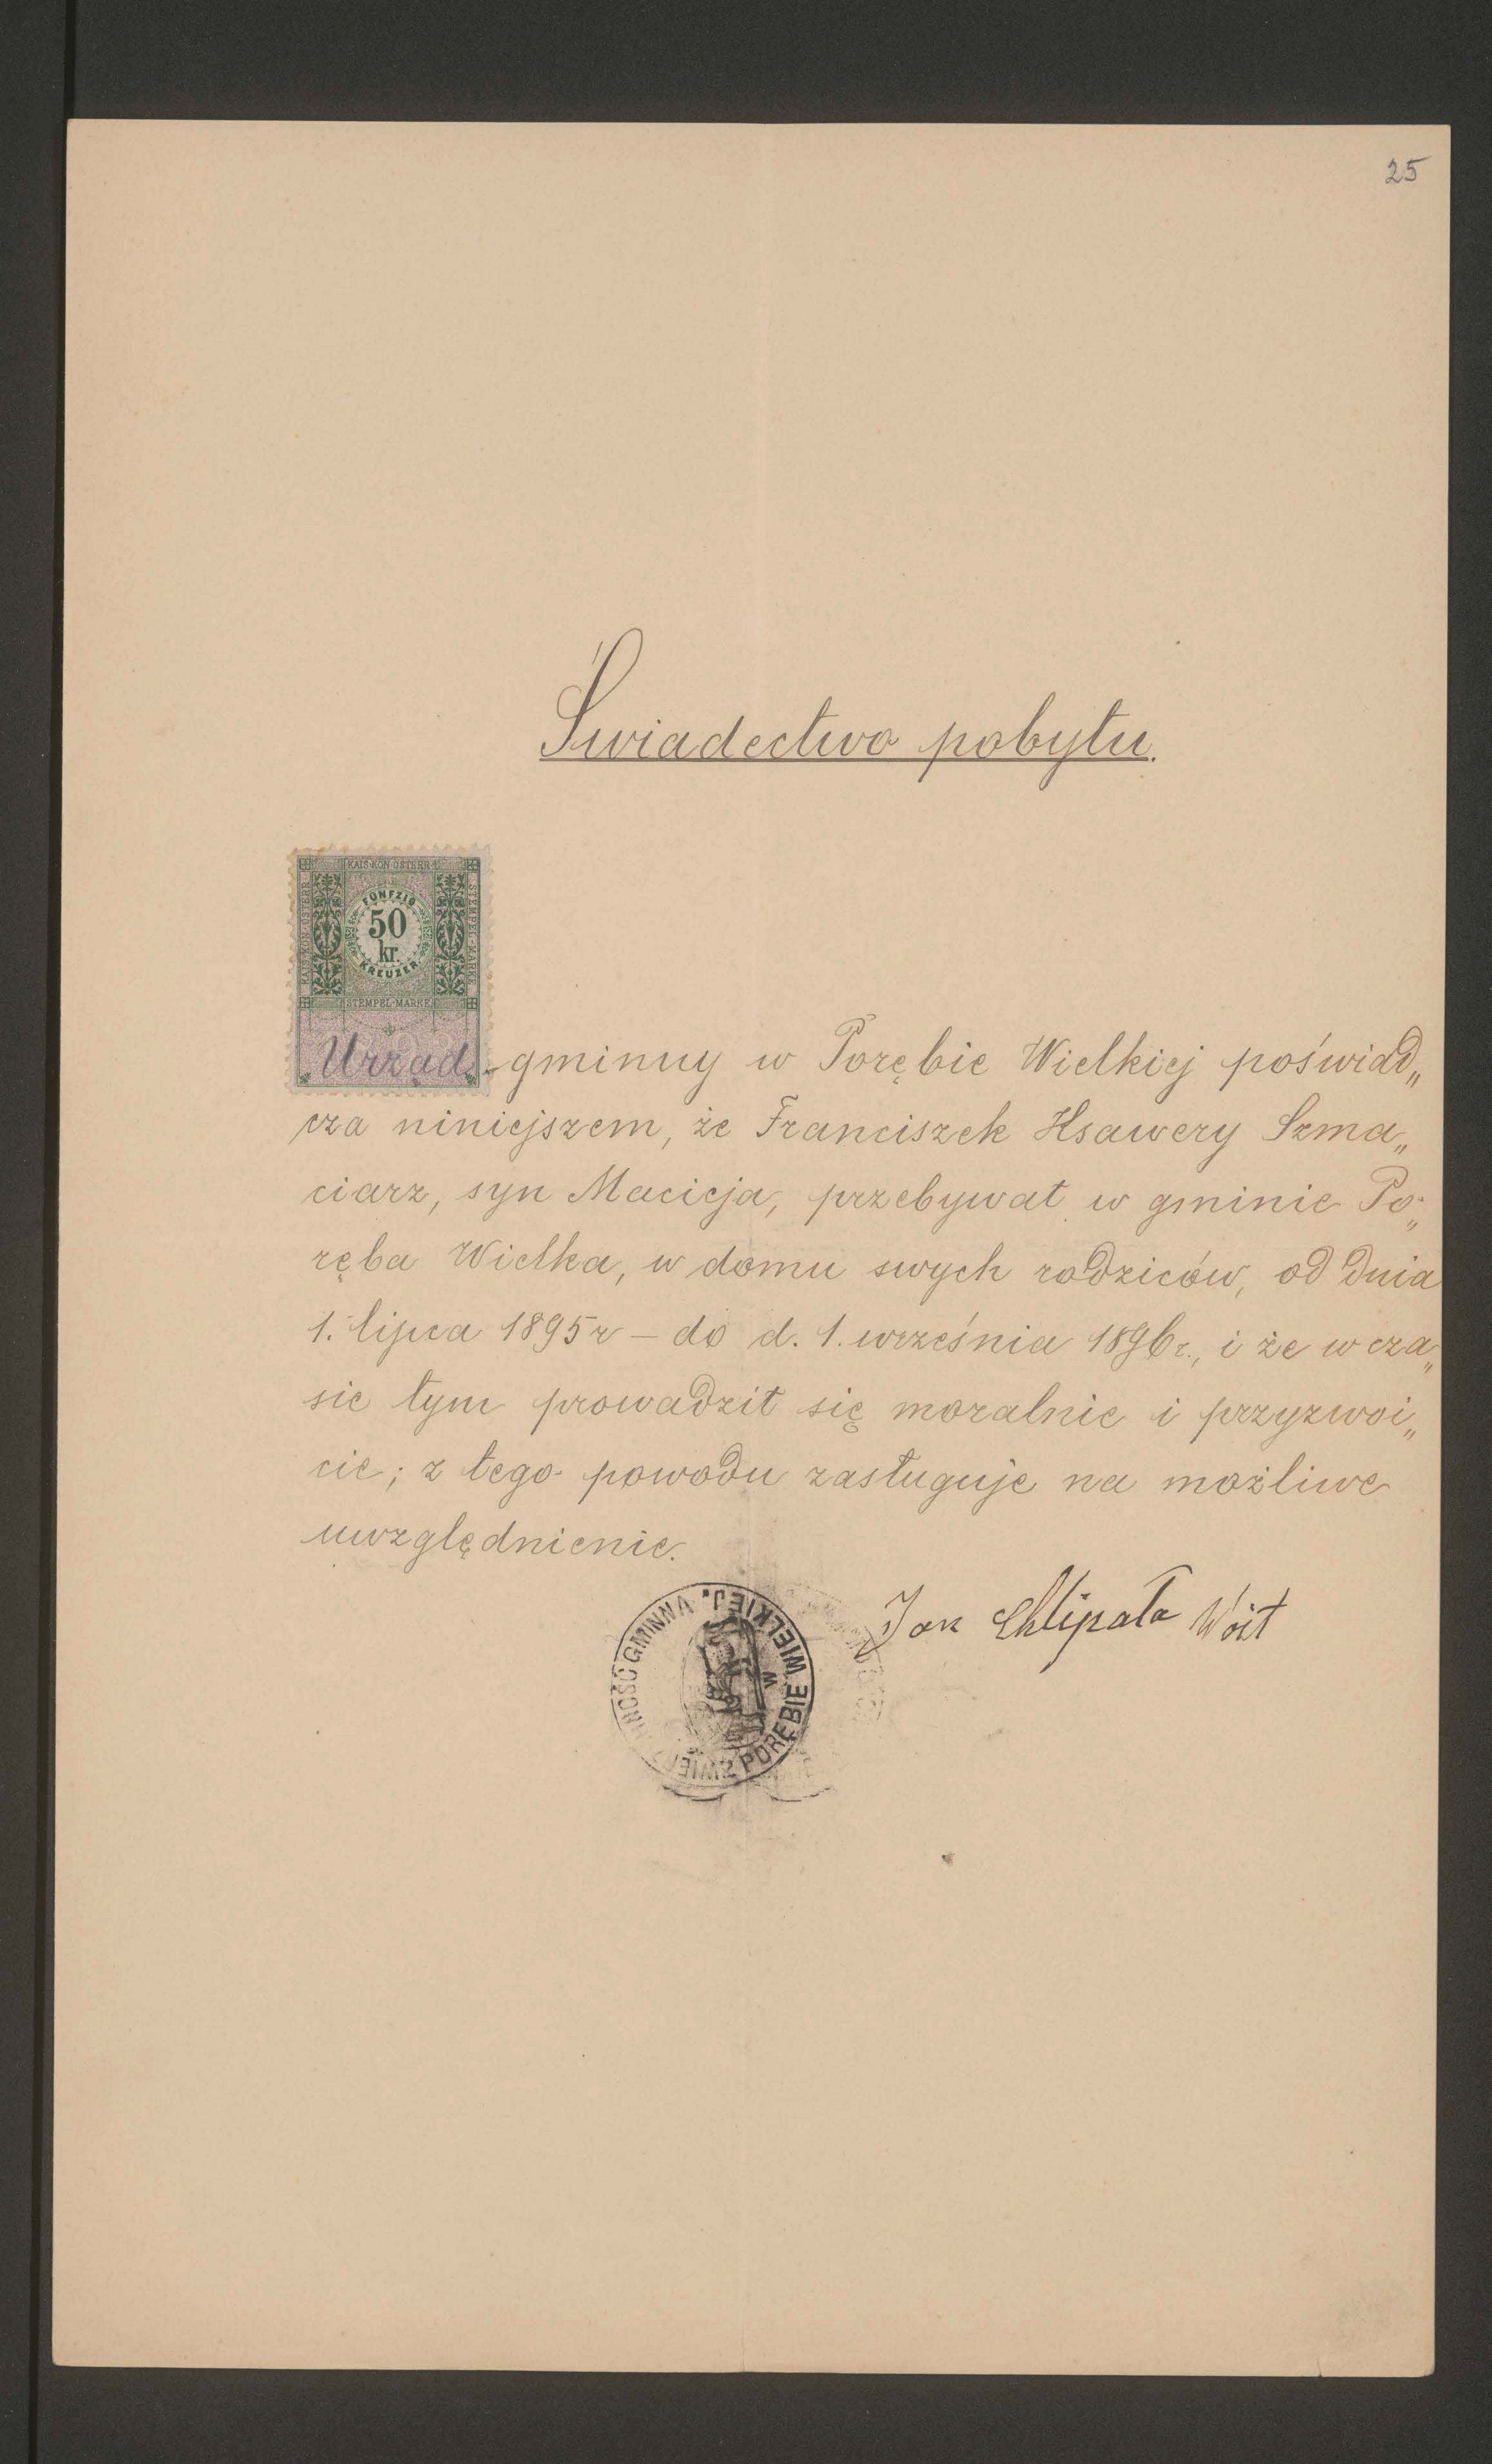 25
Świadectwo pobytu.
KAIS. KÖN. ÖSTERR.
KAIS. KÖN. ÖSTERR.
STEMPEL-MARKE
FÜNFZIG
50
kr.
KREUZER
STEMPEL-MARKE
Urząd gminny w Porębie Wielkiej poświad„
cza niniejszem, że Franciszek Ksawery Szma„
ciarz, syn Macieja, przebywał w gminie Po„
ręba Wielka, w domu swych rodziców, od dnia
1. lipca 1895 r – do d. 1. września 1896 r., i że w cza„
sie tym prowadził się moralnie i przyzwoi„
cie; z tego powodu zasługuje na możliwe
uwzględnienie.
Jan Chlipała Wójt
GMINNA
W PORĘBIE WIELKIEJ